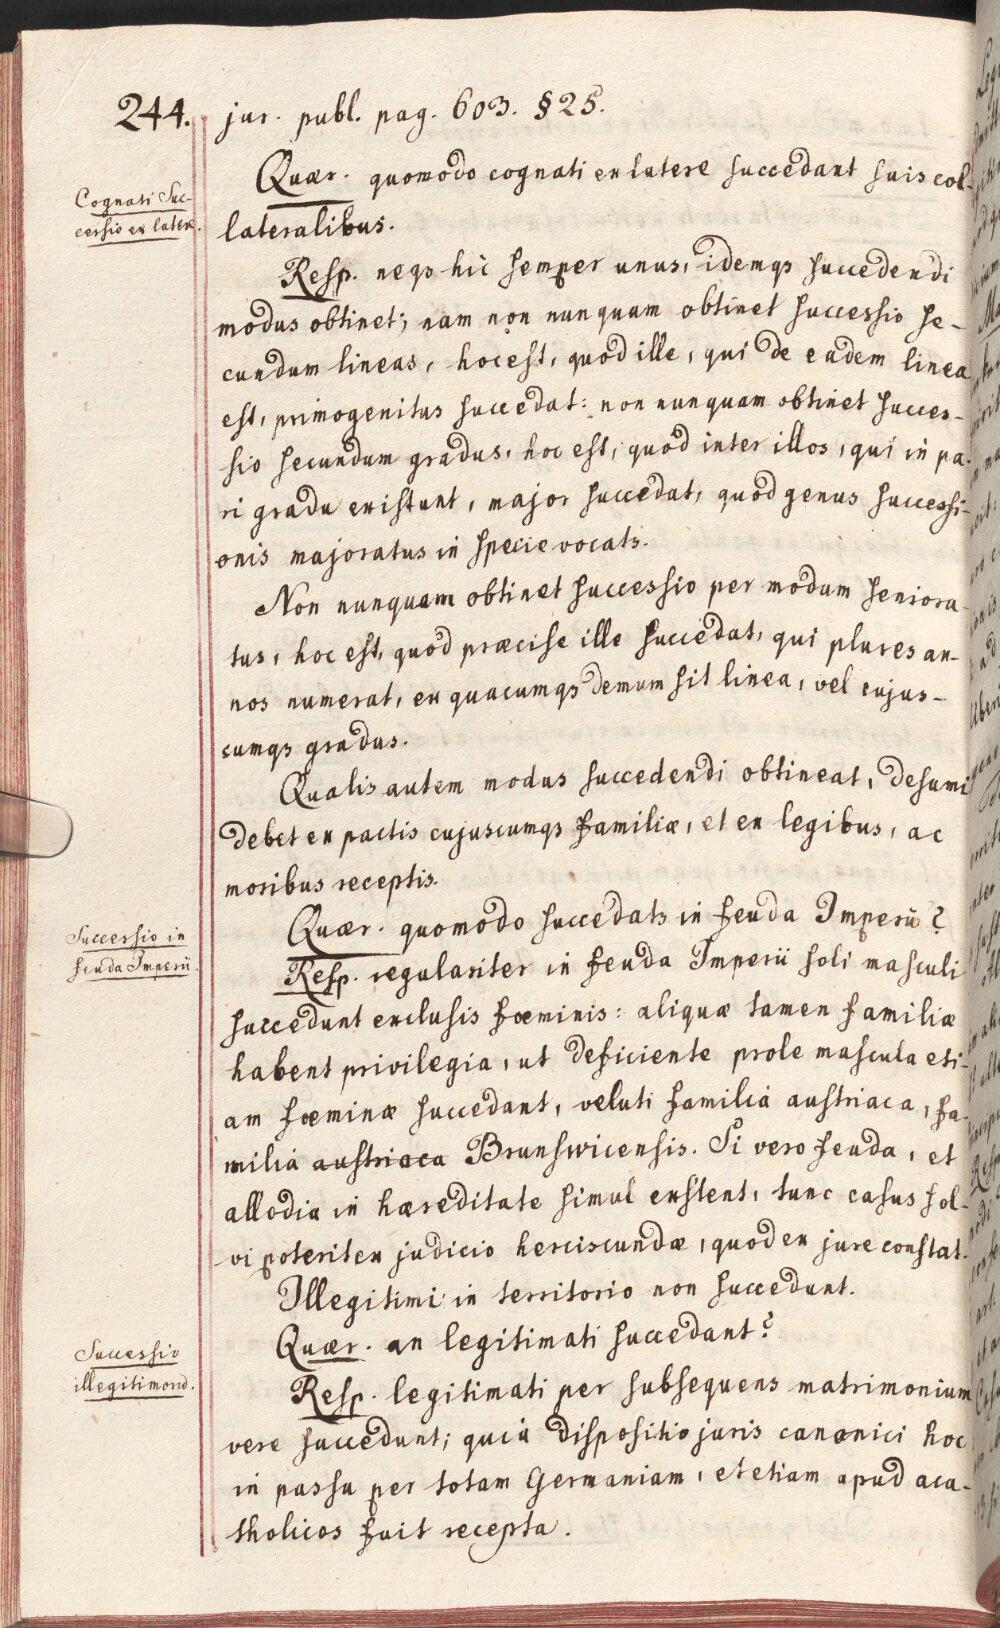 244. jur. publ. pag. 603. § 25.
Quær. quomodo cognati ex latere succedant suis col-
Cognati Suc-
cessio ex latere.
lateralibus.
Resp. neqs hic semper unus, idemqs succedendi
modus obtinet; nam non nunquam obtinet successio se-
cundum lineas, hoc est, quod ille, qui de eadem linea
est, primogenitus succedat: non nunquam obtinet succes-
sio secundum gradus, hoc est, quod inter illos, qui in pa-
ri gradu existunt, major succedat, quod genus successi-
onis majoratus in specie vocats.
Non nunquam obtinet successio per modum seniora-
tus, hoc est, quod præcise ille succedat, qui plures an-
nos numerat, ex quacumqs demum sit linea, vel cujus-
cumqs gradus.
Qualis autem modus succedendi obtineat, desumi
debet ex pactis cujuscumqs familiæ, et ex legibus, ac
moribus receptis.
Quær. quomodo succedats in feuda Imperii?
Successio in
feuda Imperii.
Resp. regulariter in feuda Imperii soli masculi
succedunt exclusis fœminis: aliquæ tamen familiæ
habent privilegia, ut deficiente prole mascula eti-
am fœminæ succedant, veluti familia austriaca, fa-
milia austriaca Brunswicensis. Si vero feuda, et
allodia in hæreditate simul exstent, tunc casus sol-
vi poterit ex judicio herciscundæ, quod ex jure constat.
Illegitimi in territorio non succedunt.
Quær. an legitimati succedant?
Successio
illegitimord.
Resp. legitimati per subsequens matrimonium
vere succedunt; quia dispositio juris canonici hoc
in passu per totam Germaniam, et etiam apud aca-
tholicos fuit recepta.